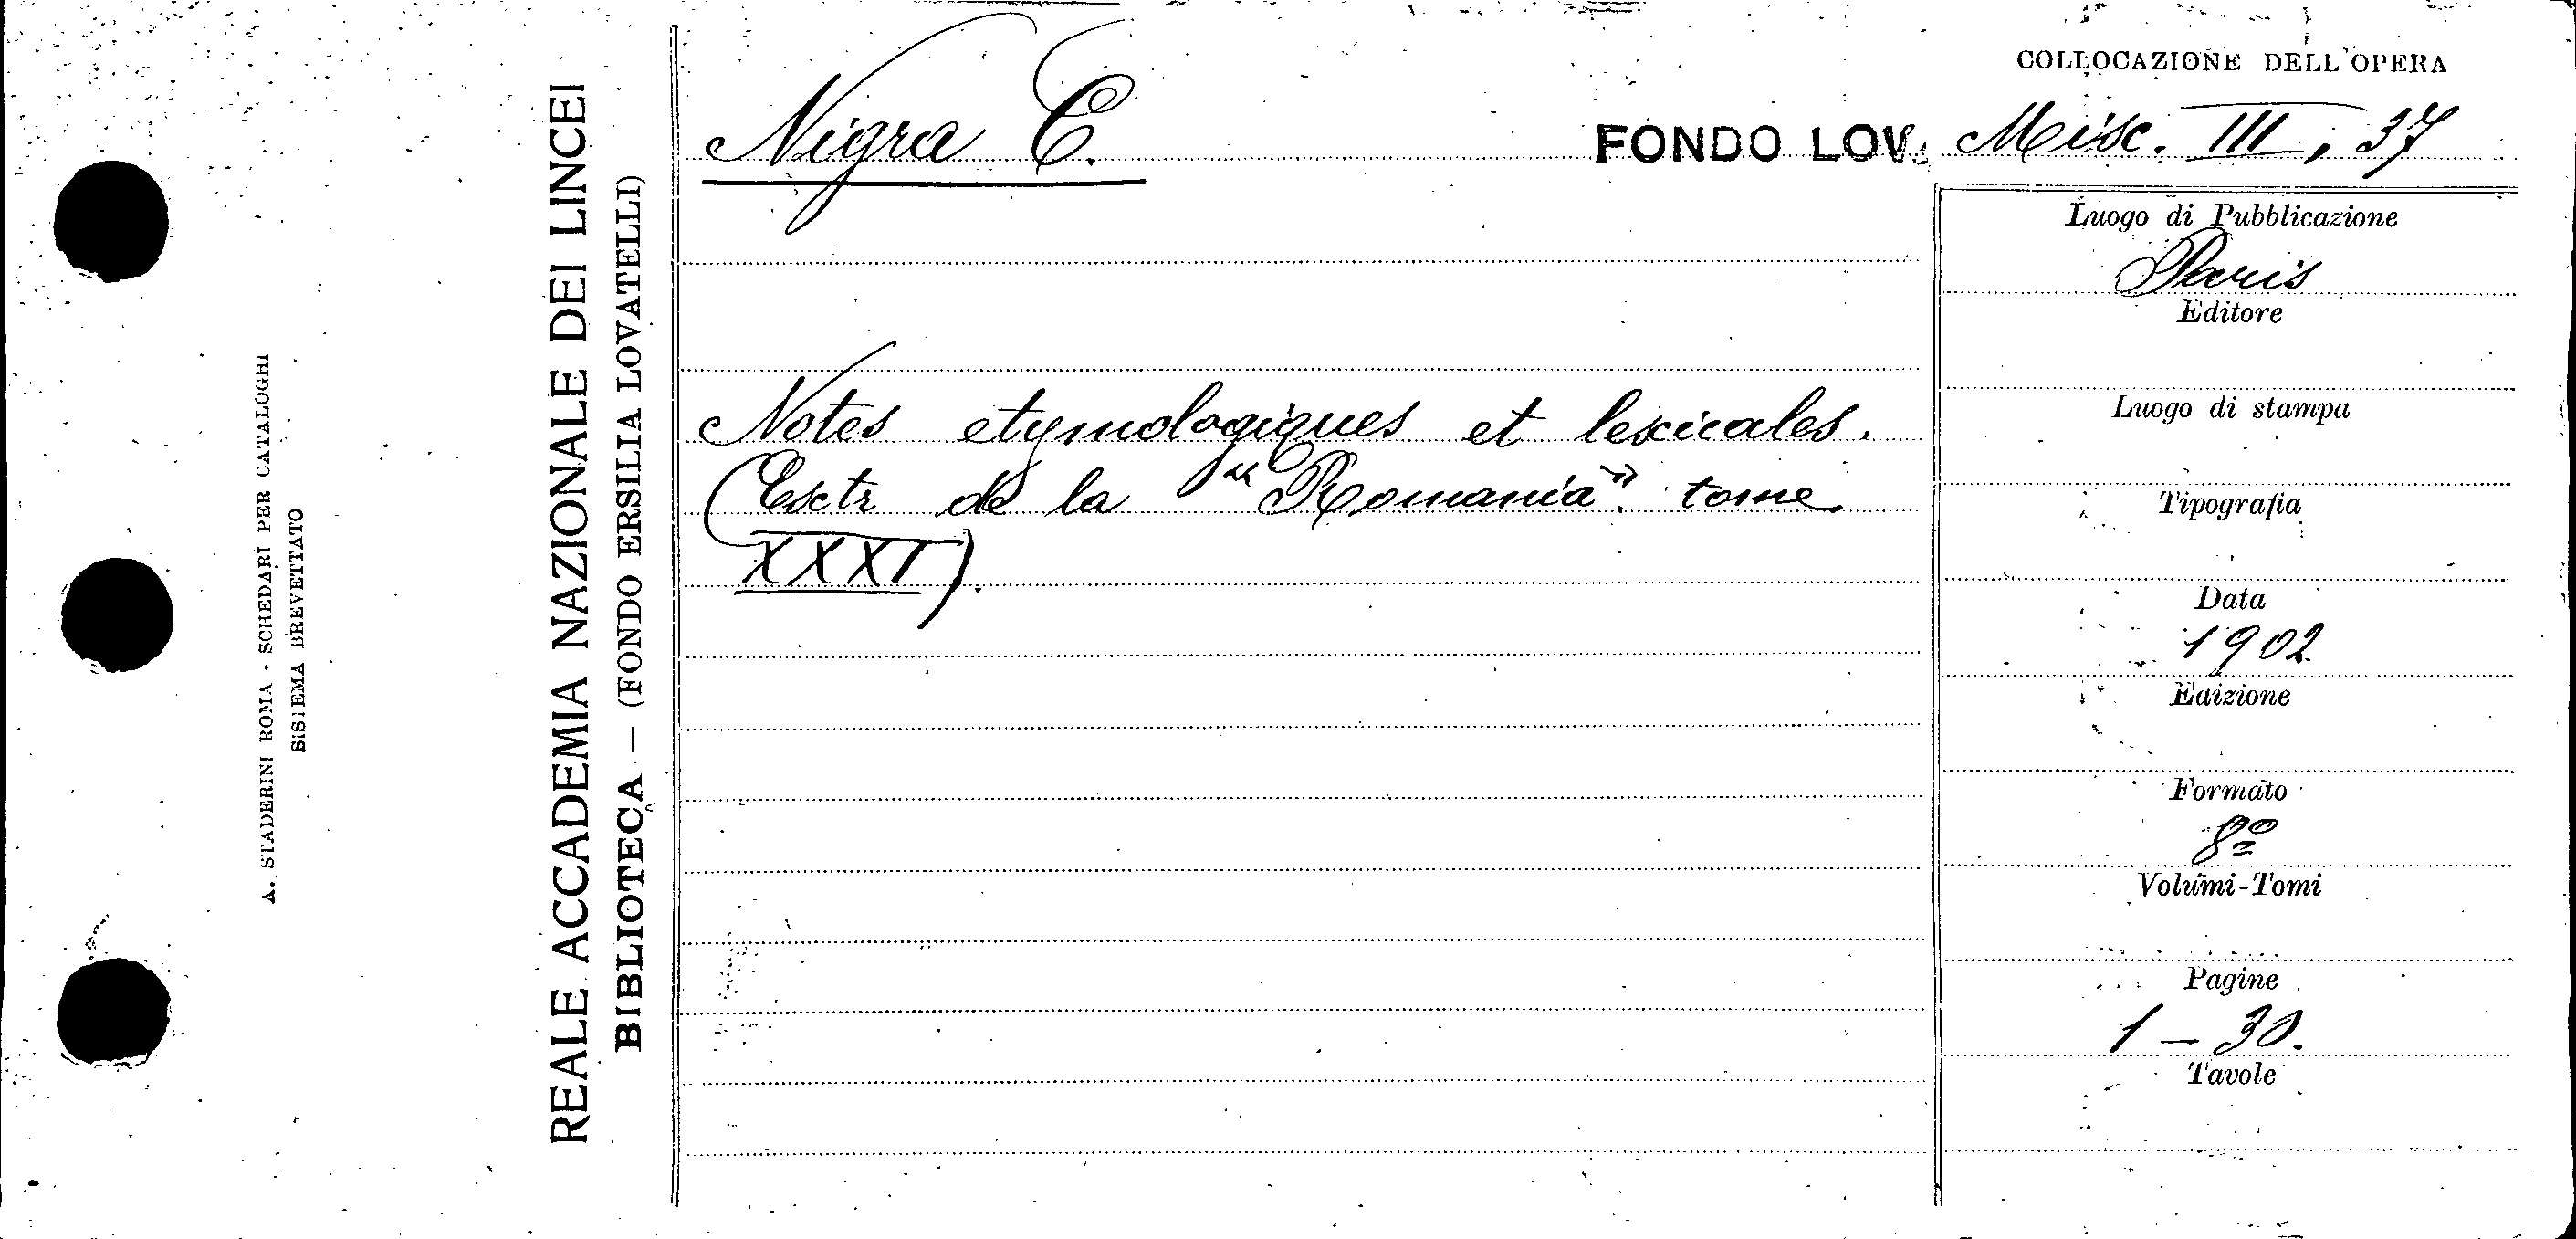 A. STADERINI ROMA - SCHEDARI PER CATALOGHI
SISTEMA BREVETTATO
REALE ACCADEMIA NAZIONALE DEI LINCEI
BIBLIOTECA — (FONDO ERSILIA LOVATELLI)
Nigra C.
Notes etymologiques et lexicales.
(Extr de la "Romania". tome
XXXI).
COLLOCAZIONE DELL'OPERA
FONDO LOV. Misc. III, 37
Luogo di Pubblicazione
Paris
Editore
Luogo di stampa
Tipografia
Data
1902
Edizione
Formato
8º
Volumi-Tomi
Pagine
1 - 30.
Tavole